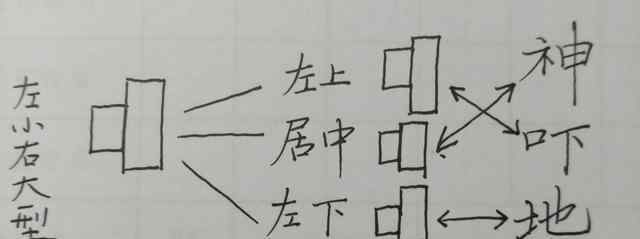 左小右大型
左上
神
居中
吓
左下
地